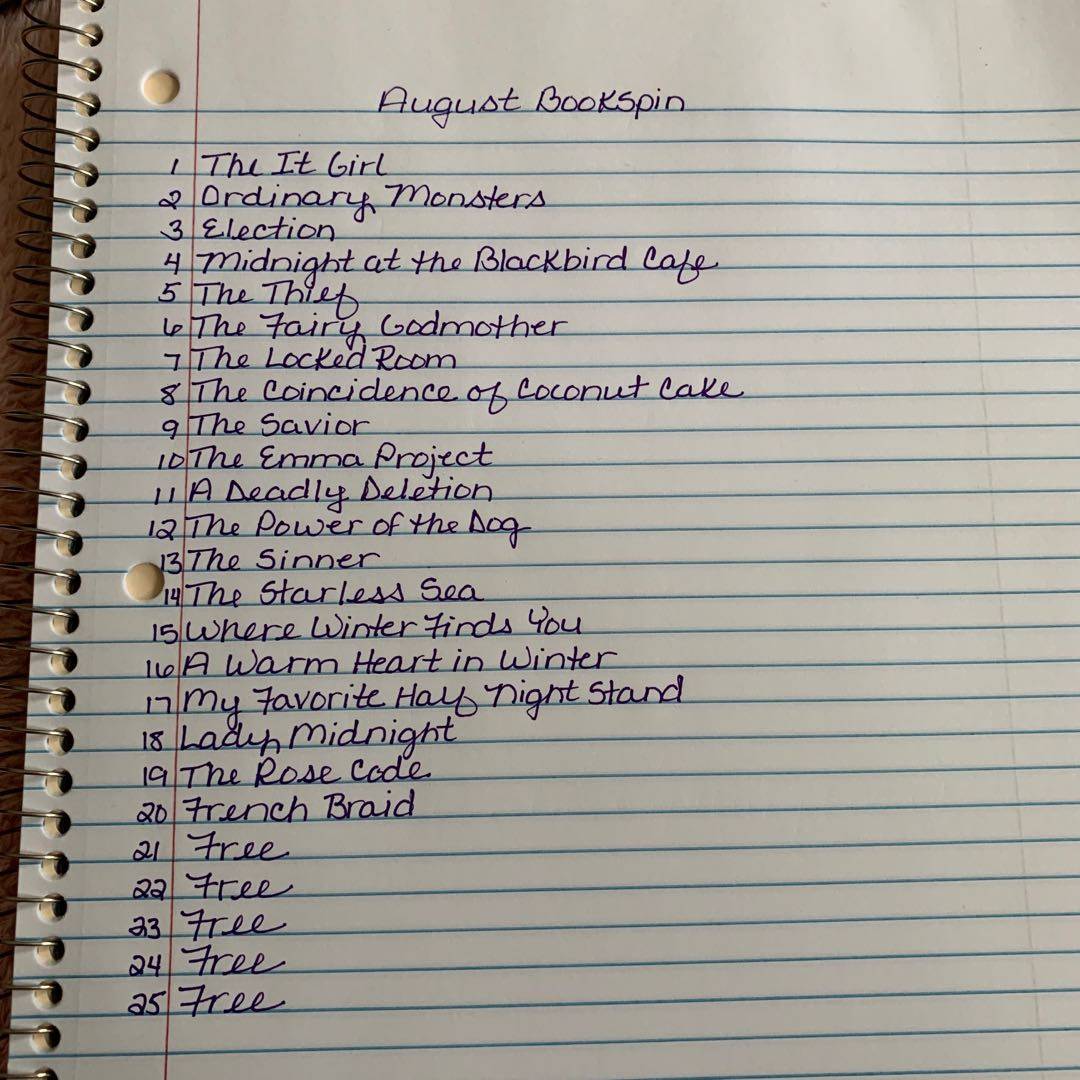 August Bookspin
1 The It Girl
2 Ordinary Monsters
3 Election
4 Midnight at the Blackbird Cafe
5 The Thief
6 The Fairy Godmother
7 The Locked Room
8 The Coincidence of Coconut Cake
9 The Savior
10 The Emma Project
11 A Deadly Deletion
12 The Power of the Dog
13 The Sinner
14 The Starless Sea
15 Where Winter Finds You
16 A Warm Heart in Winter
17 My Favorite Half Night Stand
18 Lady Midnight
19 The Rose Code
20 French Braid
21 Free
22 Free
23 Free
24 Free
25 Free